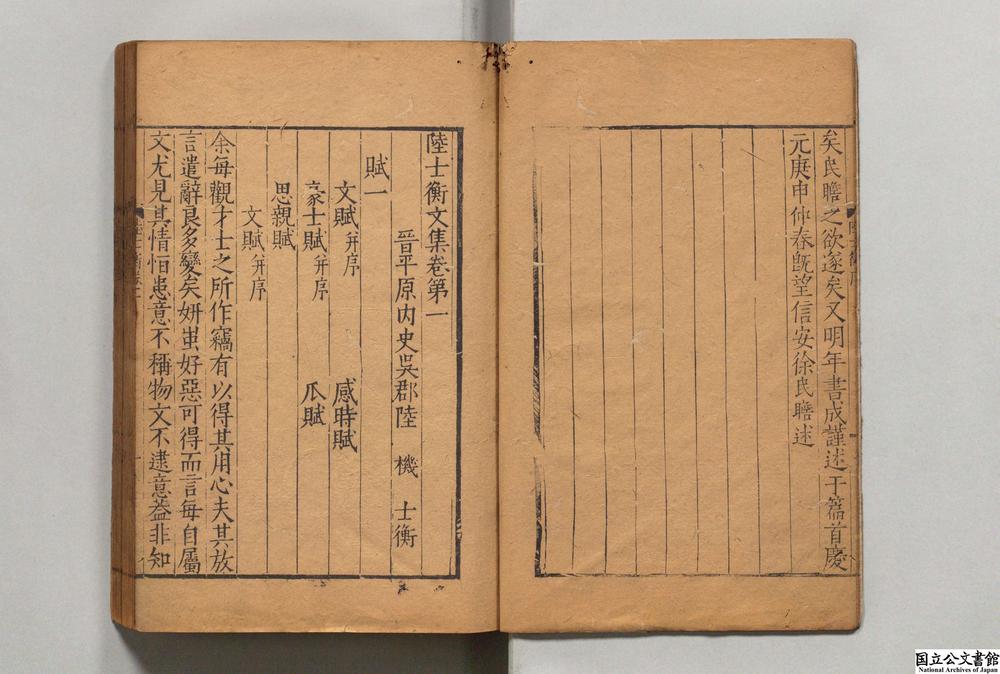 矣民瞻之欲遂矣又明年書成謹述于篇首慶
元庚申仲春旣望信安徐民瞻述
陸士衡文集卷第一
晉平原內史吳郡陸 機 士衡
賦一
文賦并序 感時賦
豪士賦并序 瓜賦
思親賦
文賦并序
余每觀才士之所作竊有以得其用心夫其放
言遣辭良多變矣妍蚩好惡可得而言每自屬
文尤見其情恒患意不稱物文不逮意葢非知
国立公文書館
National Archives of Japan